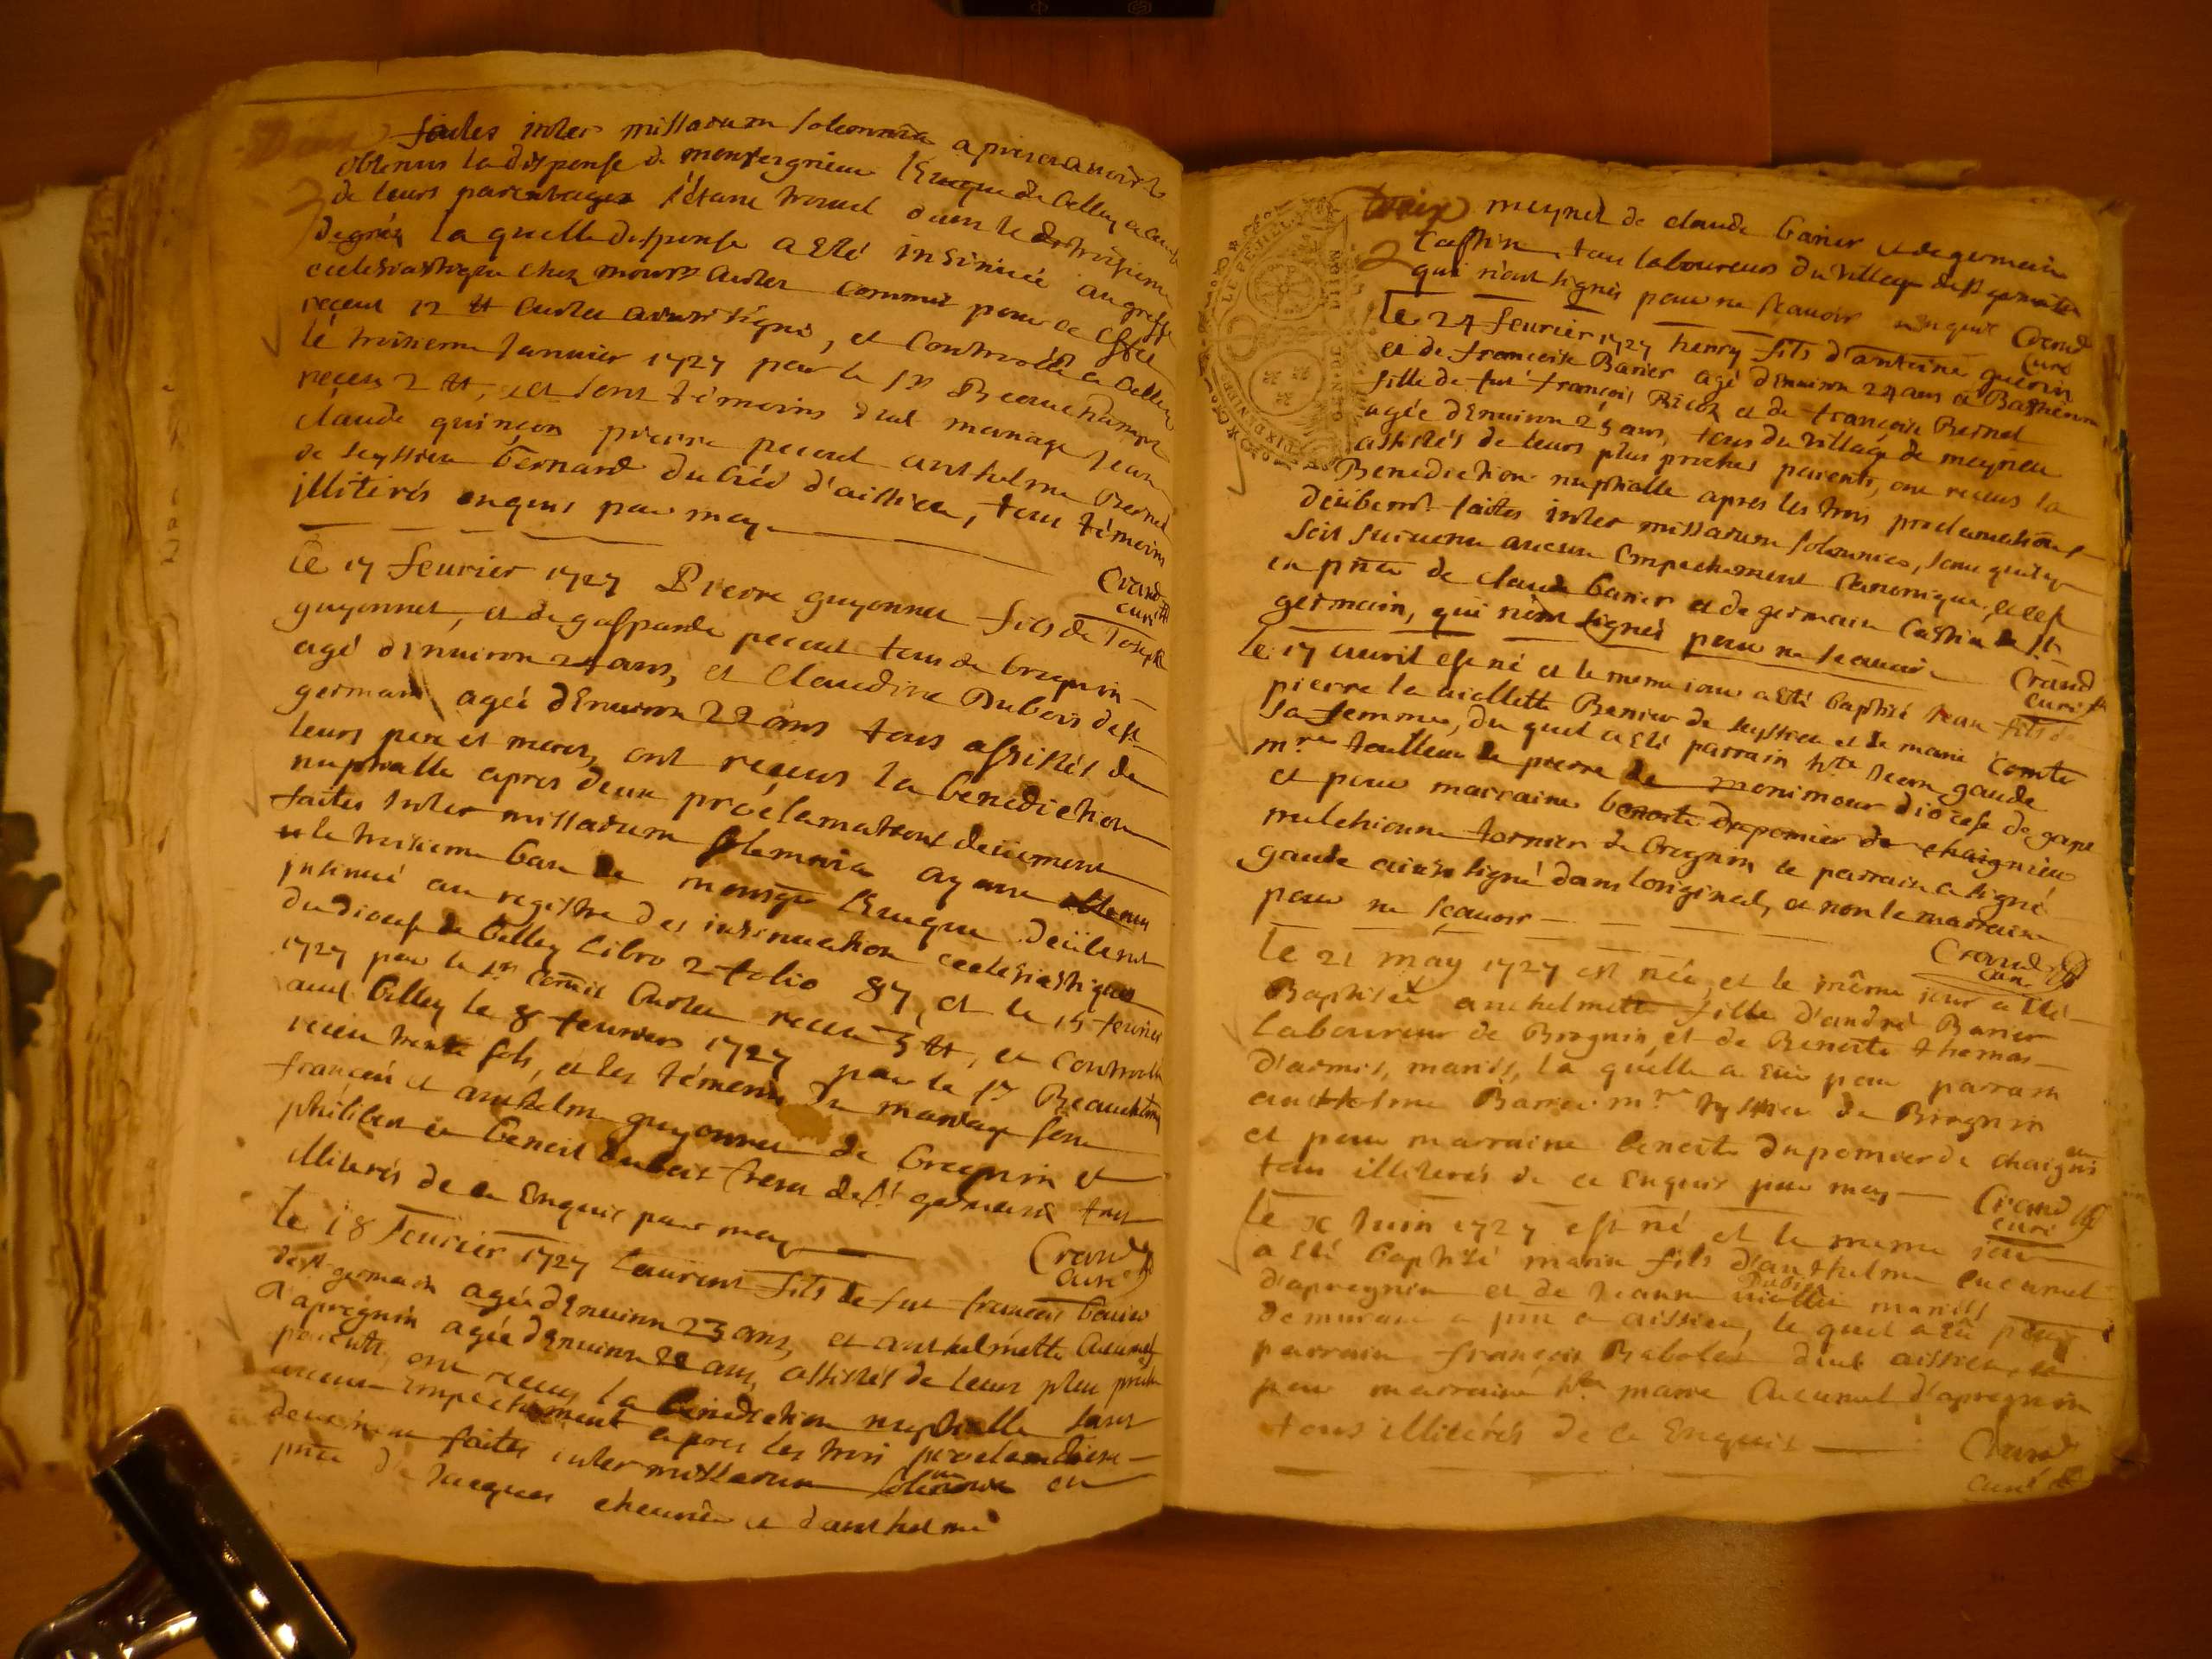 Deux faites inter missarum solemnia apres avoir
obtenus la dispense de monseigneur l'Eveque de Belley a cause
de leurs parentages s'étant trouvé dans le troisieme
degrés la quelle dispense a Eté insinuée au greffe
ecclesiastique chez commis pour ce Effet
receut 12 tt ainsi signé, et Controllé a Belley
le troisieme Janvier 1727 par le sr Beauchamp
receu 2 tt, et sont témoins dud mariage Jean
claude quinçon pierre pecout anthelme Bernet
de seyssieu bernard dubied d'aissieu, tous témoins
illiterés enquis par moy
Crand
curé
Le 17 feurier 1727 Pierre guyonnet fils de Joseph
guyonnet, et de gasparde pecout tous de bregnin
agé d'Enuiron 24 ans, et Claudine Dubois de st
germain agée d'Enuiron 22 ans tous assistés de
leurs pere et meres, ont receus la benediction
nuptialle apres deux proclamations deuement
faites inter missarum solemnia ayant obtenu
le troisieme ban de monsgr l'Eueque deüement
insinué au registre des insinuation ecclesiastiques
du diocese de Belley libro 2 folio 87, et le 15 feurier
1727 par le sr Commis receu 5 tt, et controllé
aud Belley le 8 feurier 1727 par le sr Beauchamp
receu trente sols, et les témoins du mariage sont
françois et anthelme guyonnet de bregnin et
philibert et benoit dubois freres de st germain tous
illiterés de ce Enquis par moy
Crand
curé
Le 18 Feurier 1727 Laurent fils de fut françois barier
de st germain agé d'Enuiron 23 ans, et anthelmette Cucumel
d'apregnin agée d'Enuiron 22 ans, assistés de leurs plus proche
parents, ont receus la benediction nuptialle sans
aucun Empechement apres les trois proclamations
deuement faites inter missarum solemnia en
pñce de Jacques cheurier et d'anthelme
trois meynet de claude barier et de germain
Castin tous laboureurs du village de st germain
qui n'ont signés pour ne scauoir enquis Crand
curé
LE PETIT PAPIER DIXDENIERS DIJON
Le 24 feurier 1727 henry fils d'antoine guerin
et de françoise Barier agé d'Enuiron 24 ans et
fille de fut françois Ricoz et de françoise Bernet
agée d'Enuiron 25 ans, tous du village de meyrieu
assistés de leurs plus proches parents, ont receus la
Benediction nuptialle apres les trois proclamations
deüibent faites inter missarum solemnia, sans quil y
soit suruenu aucun Empechement Canonique, et ce
en pñce de claude barier et de germain Castin de st
germain, qui n'ont signés pour ne scauoir
Crand
curé
Le 17 auril est né et le meme iour a Eté baptisé Jean fils de
pierre la uiollette Banier de seyssieu et de marie comte
sa femme, du quel a Eté parrain hte Jean gaude
mre tailleur de pierre de monimour diocese de gape
et pour marraine benoite dupomier de chaignieu
melchionne tornier de bregnin le parrain a signé
gaude ainsi signé dans l'original, et non la marraine
pour ne scauoir
Crand
curé
Le 21 may 1727 est née, et le même jour a Eté
Baptisée anthelmette fille d'andré Barier
laboureur de Bregnin, et de Benoite thomas
d'armis, mariés, la quelle a Eüe pour parrain
anthelme Barier mre tyssier de Bregnin
et pour marraine benoite dupomier de chaignieu
tous illiterés de ce Enquis par moy
Crand
curé
Le X Juin 1727 est né et le meme jour
a Eté baptisé marin fils d'anthelme Cucumel
d'apregnin et de Jeanne uiollet mariés
demurant a pñt a aissieu, le quel a Eû pour
parrain françois Rabolet dud aissieu, et
pour marraine hte marie Cucumel d'apregnin
tous illiterés de ce Enquis
Crand
curé